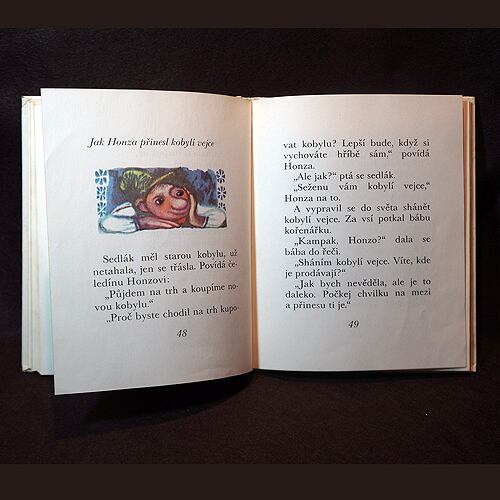 Jak Honza přinesl kobylí vejce
Sedlák měl starou kobylu, už
netahala, jen se třásla. Povídá če-
ledínu Honzovi:
„Půjdem na trh a koupíme no-
vou kobylu.“
„Proč byste chodil na trh kupo-
48
vat kobylu? Lepší bude, když si
vychováte hříbě sám,“ povídá
Honza.
„Ale jak?“ ptá se sedlák.
„Seženu vám kobylí vejce,“
Honza na to.
A vypravil se do světa shánět
kobylí vejce. Za vsí potkal bábu
kořenářku.
„Kampak, Honzo?“ dala se
bába do řeči.
„Sháním kobylí vejce. Víte, kde
je prodávají?“
„Jak bych nevěděla, ale je to
daleko. Počkej chvilku na mezi
a přinesu ti je.“
49